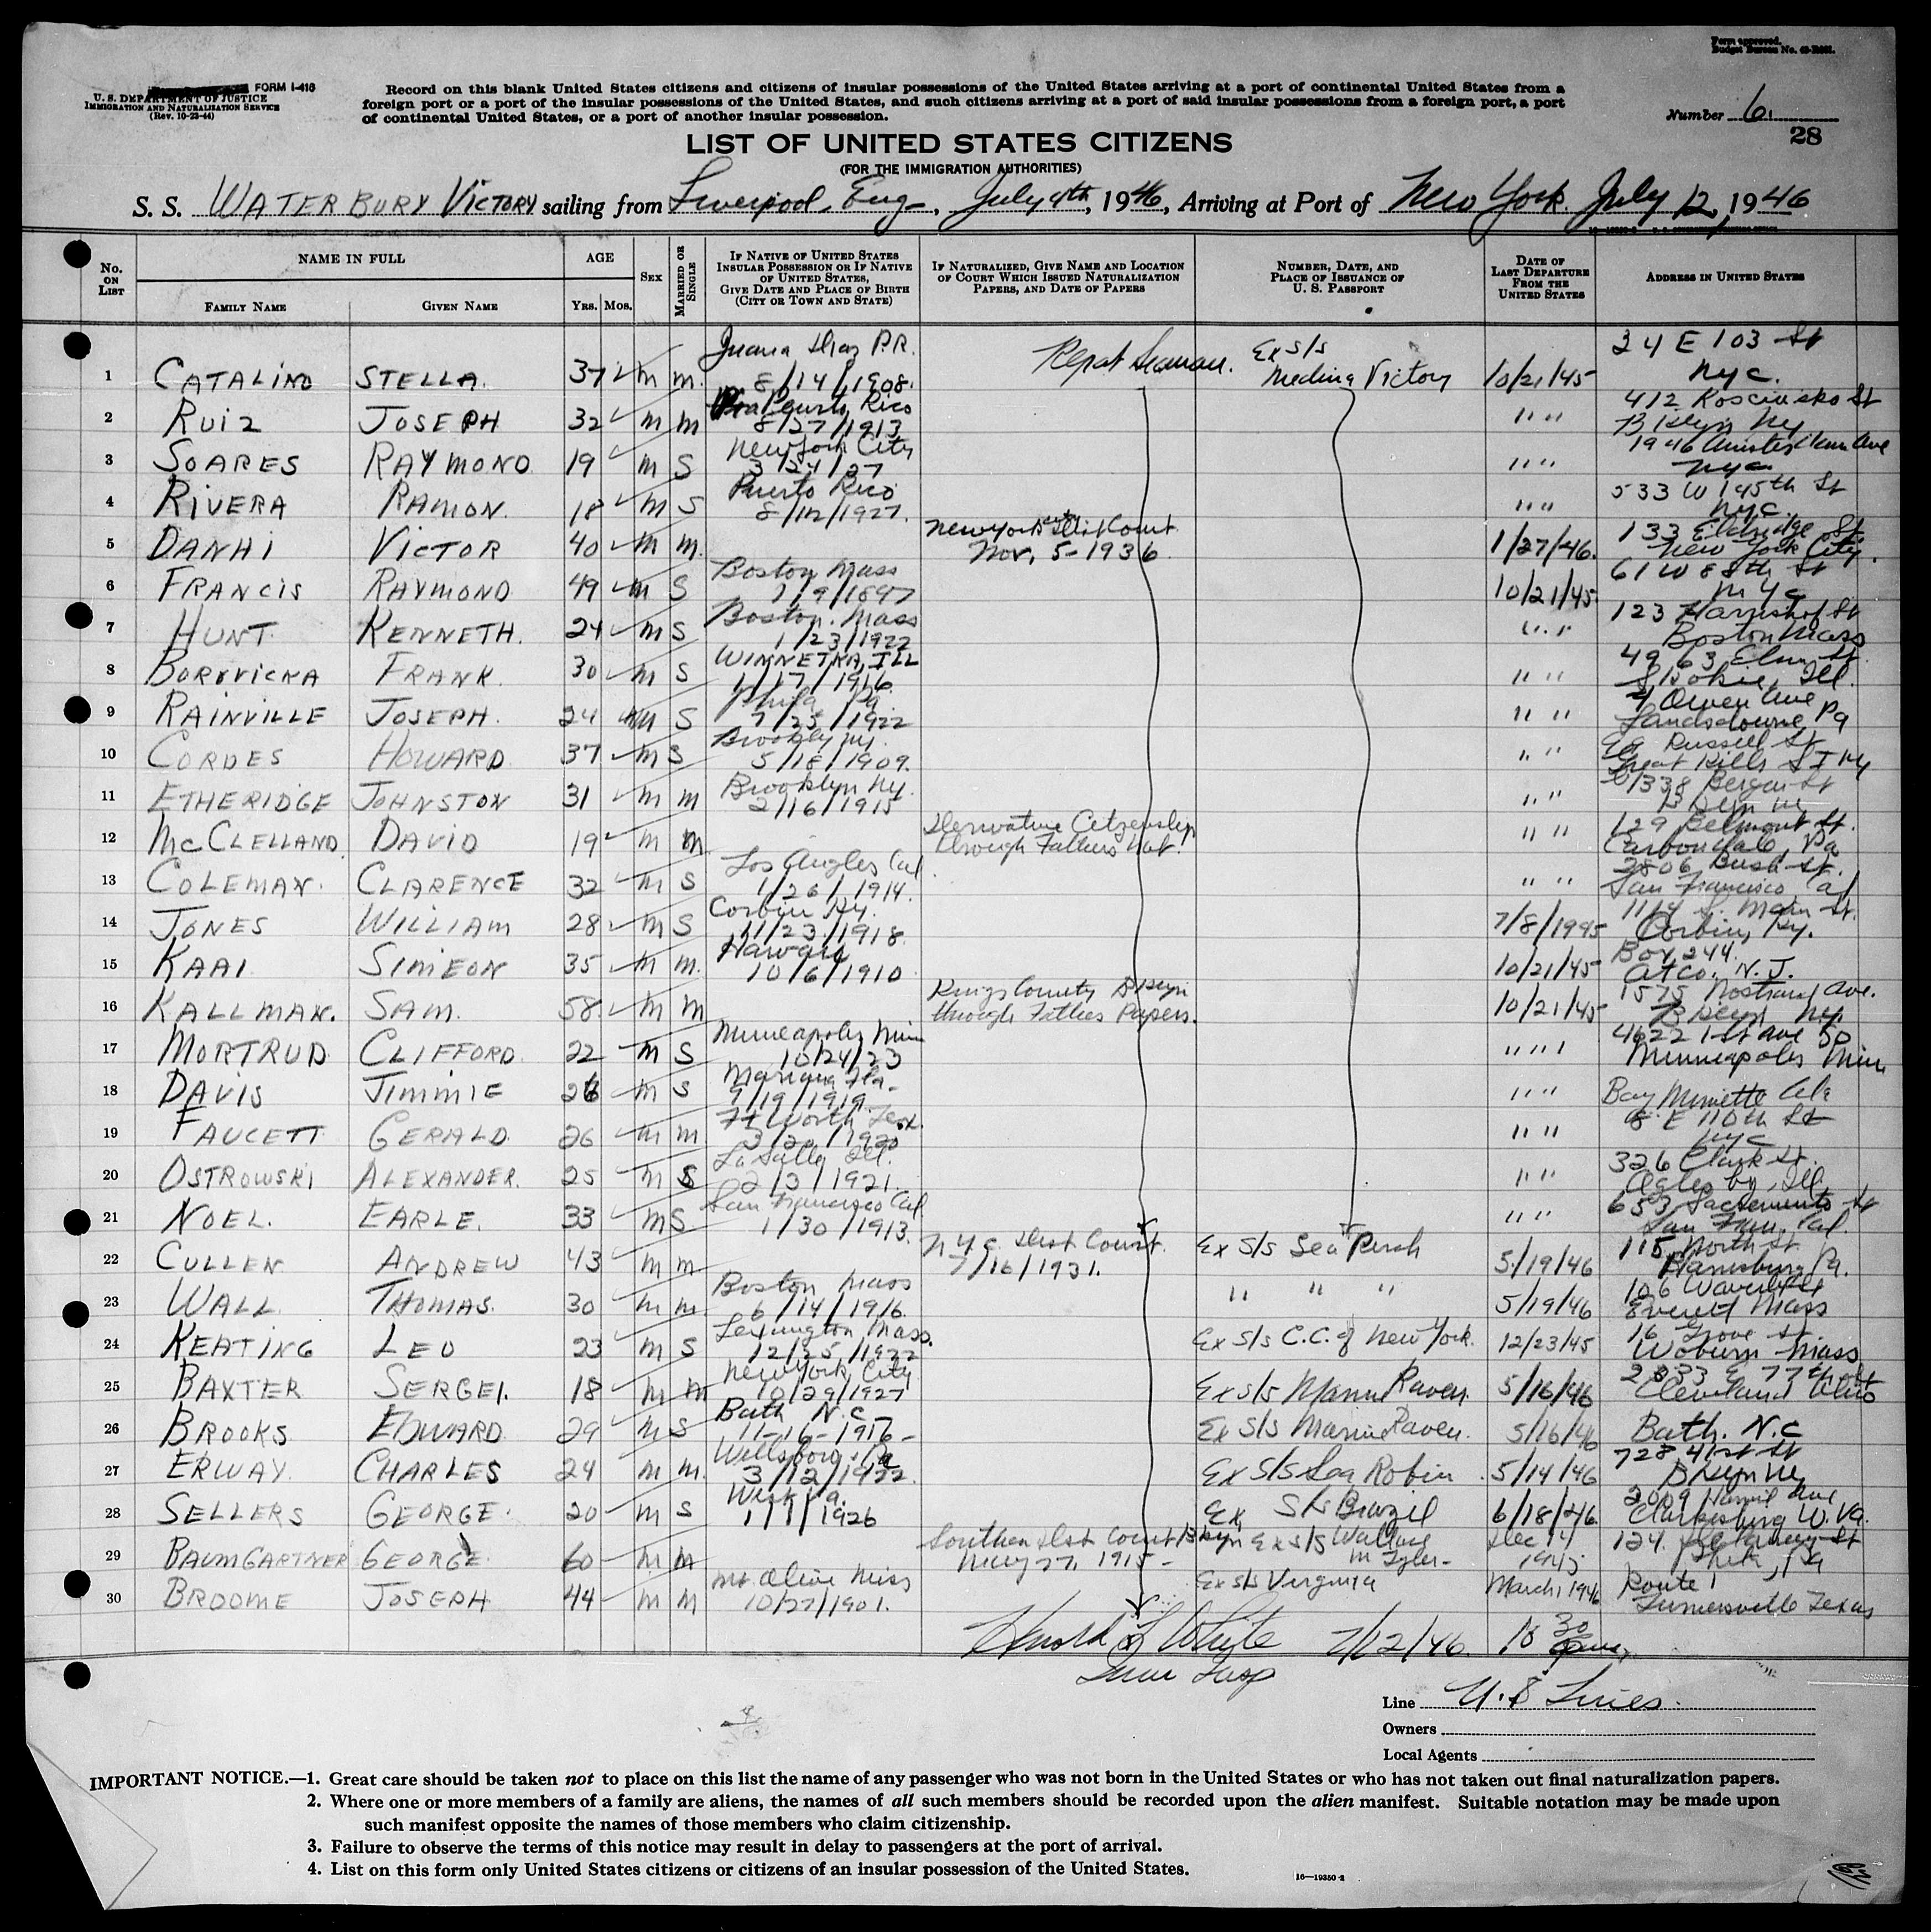 Form approved.
Budget Bureau No. 43-R031.
FORM I-416
U. S. DEPARTMENT OF JUSTICE
IMMIGRATION AND NATURALIZATION SERVICE
(Rev. 10-23-44)
Record on this blank United States citizens and citizens of insular possessions of the United States arriving at a port of continental United States from a
foreign port or a port of the insular possessions of the United States, and such citizens arriving at a port of said insular possessions from a foreign port, a port
of continental United States, or a port of another insular possession.
Number 6.
28
LIST OF UNITED STATES CITIZENS
(FOR THE IMMIGRATION AUTHORITIES)
S. S. WATERBURY VICTORY sailing from Liverpool, Eng., July 4th, 1946, Arriving at Port of New York July 12, 1946
No. ON LIST
NAME IN FULL
FAMILY NAME
GIVEN NAME
AGE
YRS. MOS.
SEX
MARRIED OR SINGLE
IF NATIVE OF UNITED STATES INSULAR POSSESSION OR IF NATIVE OF UNITED STATES, GIVE DATE AND PLACE OF BIRTH (CITY OR TOWN AND STATE)
IF NATURALIZED, GIVE NAME AND LOCATION OF COURT WHICH ISSUED NATURALIZATION PAPERS, AND DATE OF PAPERS
NUMBER, DATE, AND PLACE OF ISSUANCE OF U. S. PASSPORT
DATE OF LAST DEPARTURE FROM THE UNITED STATES
ADDRESS IN UNITED STATES
1 CATALINO STELLA. 37 M M. Juana Diaz P.R. 8/14/1908. Repat Seaman. Ex S/S Medina Victory 10/21/45 24 E 103 St NYC.
2 RUIZ JOSEPH 32 M M Puerto Rico 8/27/1913 " " 412 Kosciusko St Bklyn NY
3 SOARES RAYMOND 19 M S New York City 3/24/27 " " 1946 Amsterdam Ave NYC
4 RIVERA RAMON. 18 M S Puerto Rico 8/12/1927. " " 533 W 145th St NYC.
5 DANHI VICTOR 40 M M. New York Dist Court Nov. 5-1936 1/27/46. 133 Eldridge St. New York City.
6 FRANCIS RAYMOND 49 M S Boston Mass 7/9/1897 10/21/45. 61 W 88th St NYC
7 HUNT. KENNETH. 24 M S Boston. Mass 1/23/1922 " " 123 St Boston Mass
8 BOROVICKA FRANK. 30 M S WINNETKA, ILL 1/17/1916 " " 4963 Elm St. Skokie, Ill.
9 RAINVILLE JOSEPH. 24 M S Phila Pa. 7/25/1922 " " 4 Owen Ave Landsdowne Pa
10 CORDES HOWARD 37 M S Brooklyn NY. 5/18/1909. " " Russell St Great Kills S I NY
11 ETHERIDGE JOHNSTON 31 M M Brooklyn NY. 2/16/1915 " " 1338 Bergen St Bklyn NY
12 MCCLELLAND DAVID 19 M M Derivative Citizenship through Fathers Nat. " " 129 Belmont St. Carbondale, Pa
13 COLEMAN. CLARENCE 32 M S Los Angles Cal 1/26/1914. " " 2806 Bush St. San Francisco Cal
14 JONES WILLIAM 28 M S Corbin Ky. 11/23/1918. 7/8/1995 1114 S. Main St. Corbin, Ky.
15 KAAI SIMEON 35 M M. Hawaii 10/6/1910 10/21/45 Box 244. Atco. N.J.
16 KALLMAN. SAM. 58 M M Kings County Bklyn through Fathers Papers. 10/21/45 1575 Nostrand Ave. Bklyn NY.
17 MORTRUD CLIFFORD. 22 M S Minneapolis Minn 10/24/23 " " 4622 1st Ave So Minneapolis Minn
18 DAVIS JIMMIE 26 M S Mariana Fla- 9/19/1919. " " Bay Minette Ala
19 FAUCETT GERALD. 26 M M. Ft Worth Tex. 3/20/1920 " " 8 E 110th St NYC
20 OSTROWSKI ALEXANDER. 25 M S La Salle Ill. 2/3/1921. " " 326 Clark St. Oglesby, Ill.
21 NOEL. EARLE. 33 M S San Francisco Cal 1/30/1913. " " 653 Sacramento St San Fran. Cal.
22 CULLEN ANDREW 43 M M NYC Dist Court. 7/16/1931. Ex S/S Sea Perch 5/19/46 115 North St. Harrisburg Pa.
23 WALL THOMAS. 30 M M Boston Mass 6/14/1916. " " " 5/19/46 106 Everett Mass
24 KEATING LEO 23 M S Lexington Mass. 12/25/1922 Ex S/S C.C. of New York. 12/23/45 16 Grove St. Woburn Mass
25 BAXTER SERGEI. 18 M M New York City 10/29/1927 Ex S/S Marine Raven. 5/16/46 2333 E 77th St Cleveland Ohio
26 BROOKS EDWARD. 29 M S Bath N.C 11-16-1916- Ex S/S Marine Raven. 5/16/46 Bath. N.C
27 ERWAY. CHARLES 24 M M. Wellsboro, Pa 3/12/1922. Ex S/S Sea Robin 5/14/46 728 41st St Bklyn NY
28 SELLERS GEORGE. 20 M S West Va. 1/1/1926 Ex S/S Brazil 6/18/46 2009 Ave Clarksburg W. Va.
29 BAUMGARTNER GEORGE. 60 M M Southern Dist Court Bklyn May 27, 1915- Ex S/S Wallace M Tyler- Dec 14 1945 124. St Phila, Pa
30 BROOME JOSEPH 44 M M Mt Olive Miss 10/27/1901. Ex S/S Virginia March 1 1946 Route 1 Turnersville Texas
Harold F White 7/12/46. 10 30
Line U. S Lines.
Owners
Local Agents
IMPORTANT NOTICE.—1. Great care should be taken not to place on this list the name of any passenger who was not born in the United States or who has not taken out final naturalization papers.
2. Where one or more members of a family are aliens, the names of all such members should be recorded upon the alien manifest. Suitable notation may be made upon
such manifest opposite the names of those members who claim citizenship.
3. Failure to observe the terms of this notice may result in delay to passengers at the port of arrival.
4. List on this form only United States citizens or citizens of an insular possession of the United States.
16—19350-2